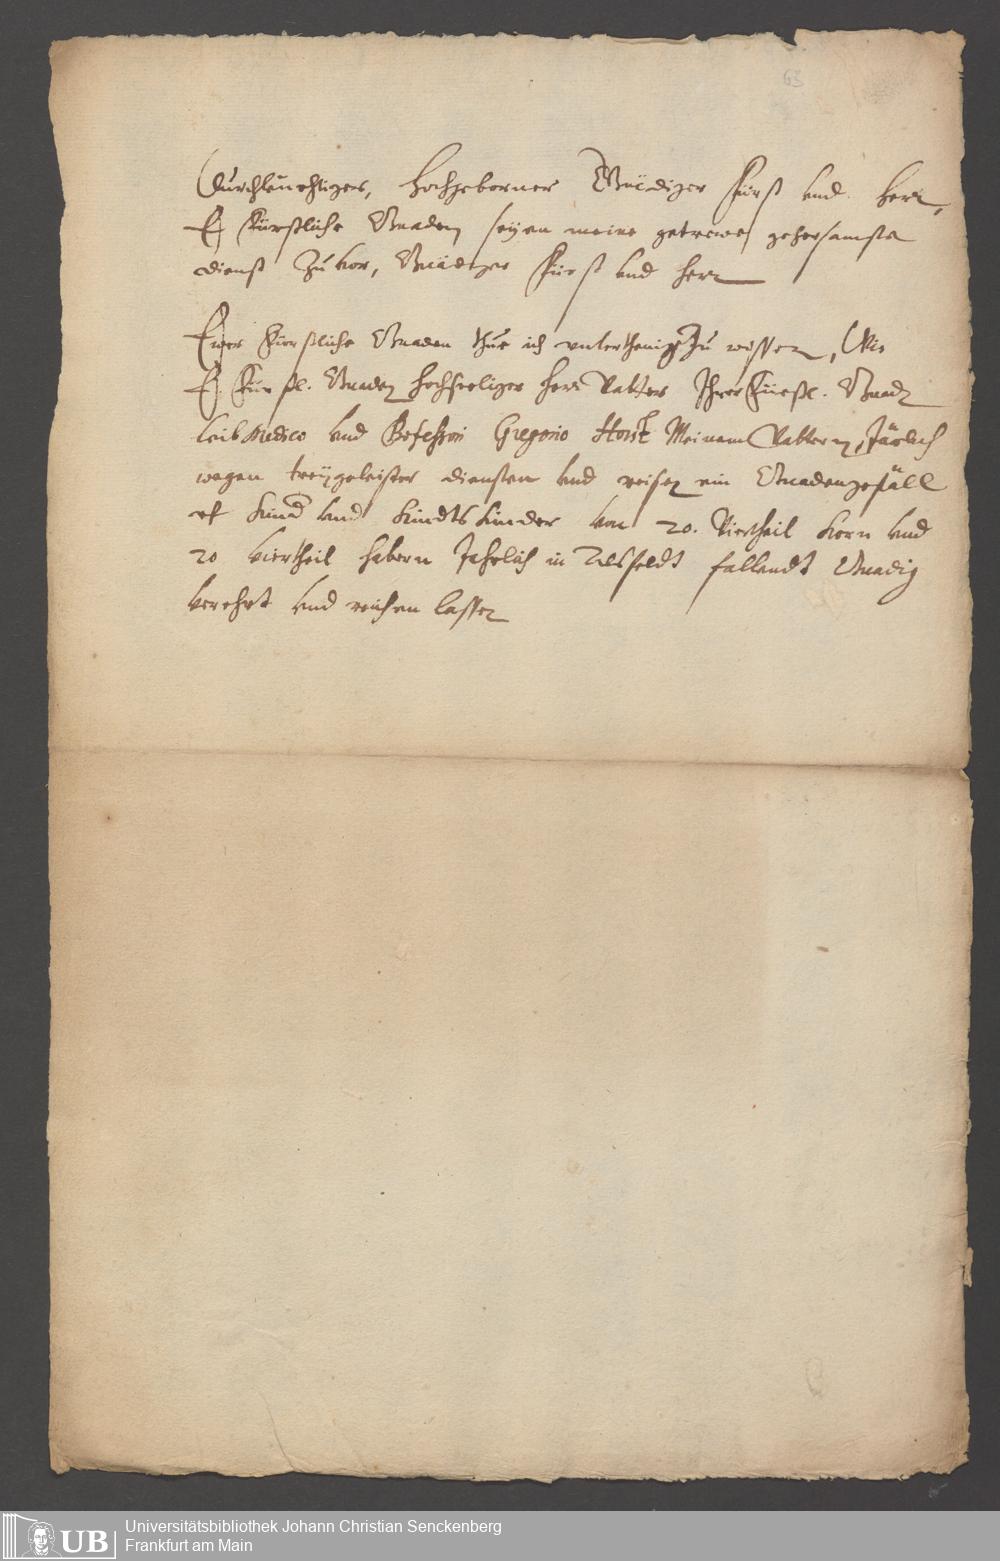 63
Durchleuchtiger, Hochgeborner Gnädiger Fürst und Herr,
E Fürstliche Gnaden seyen meine getrewe gehorsamste
dienst Zuvor, Gnädiger Fürst und Herr
Ewer Fürstliche Gnaden thue ich unterthenig Zu wissen, Wie
E. Fürstl. Gnaden Hochseeliger Herr Vatter Ihrer Fürstl. Gnad
leib Medico und Professori Gregorio Horst Meinem Vattern, Järlich
wegen treügeleister diensten und reisen ein Gnadengefäll
uf Kind und Kindts Kinder von 20. Viertheil Korn und
20 viertheil habern Jahrlich in Alsfeldt fallendt Gnadig
verehrt und reichen lassen
UB
Universitätsbibliothek Johann Christian Senckenberg
Frankfurt am Main